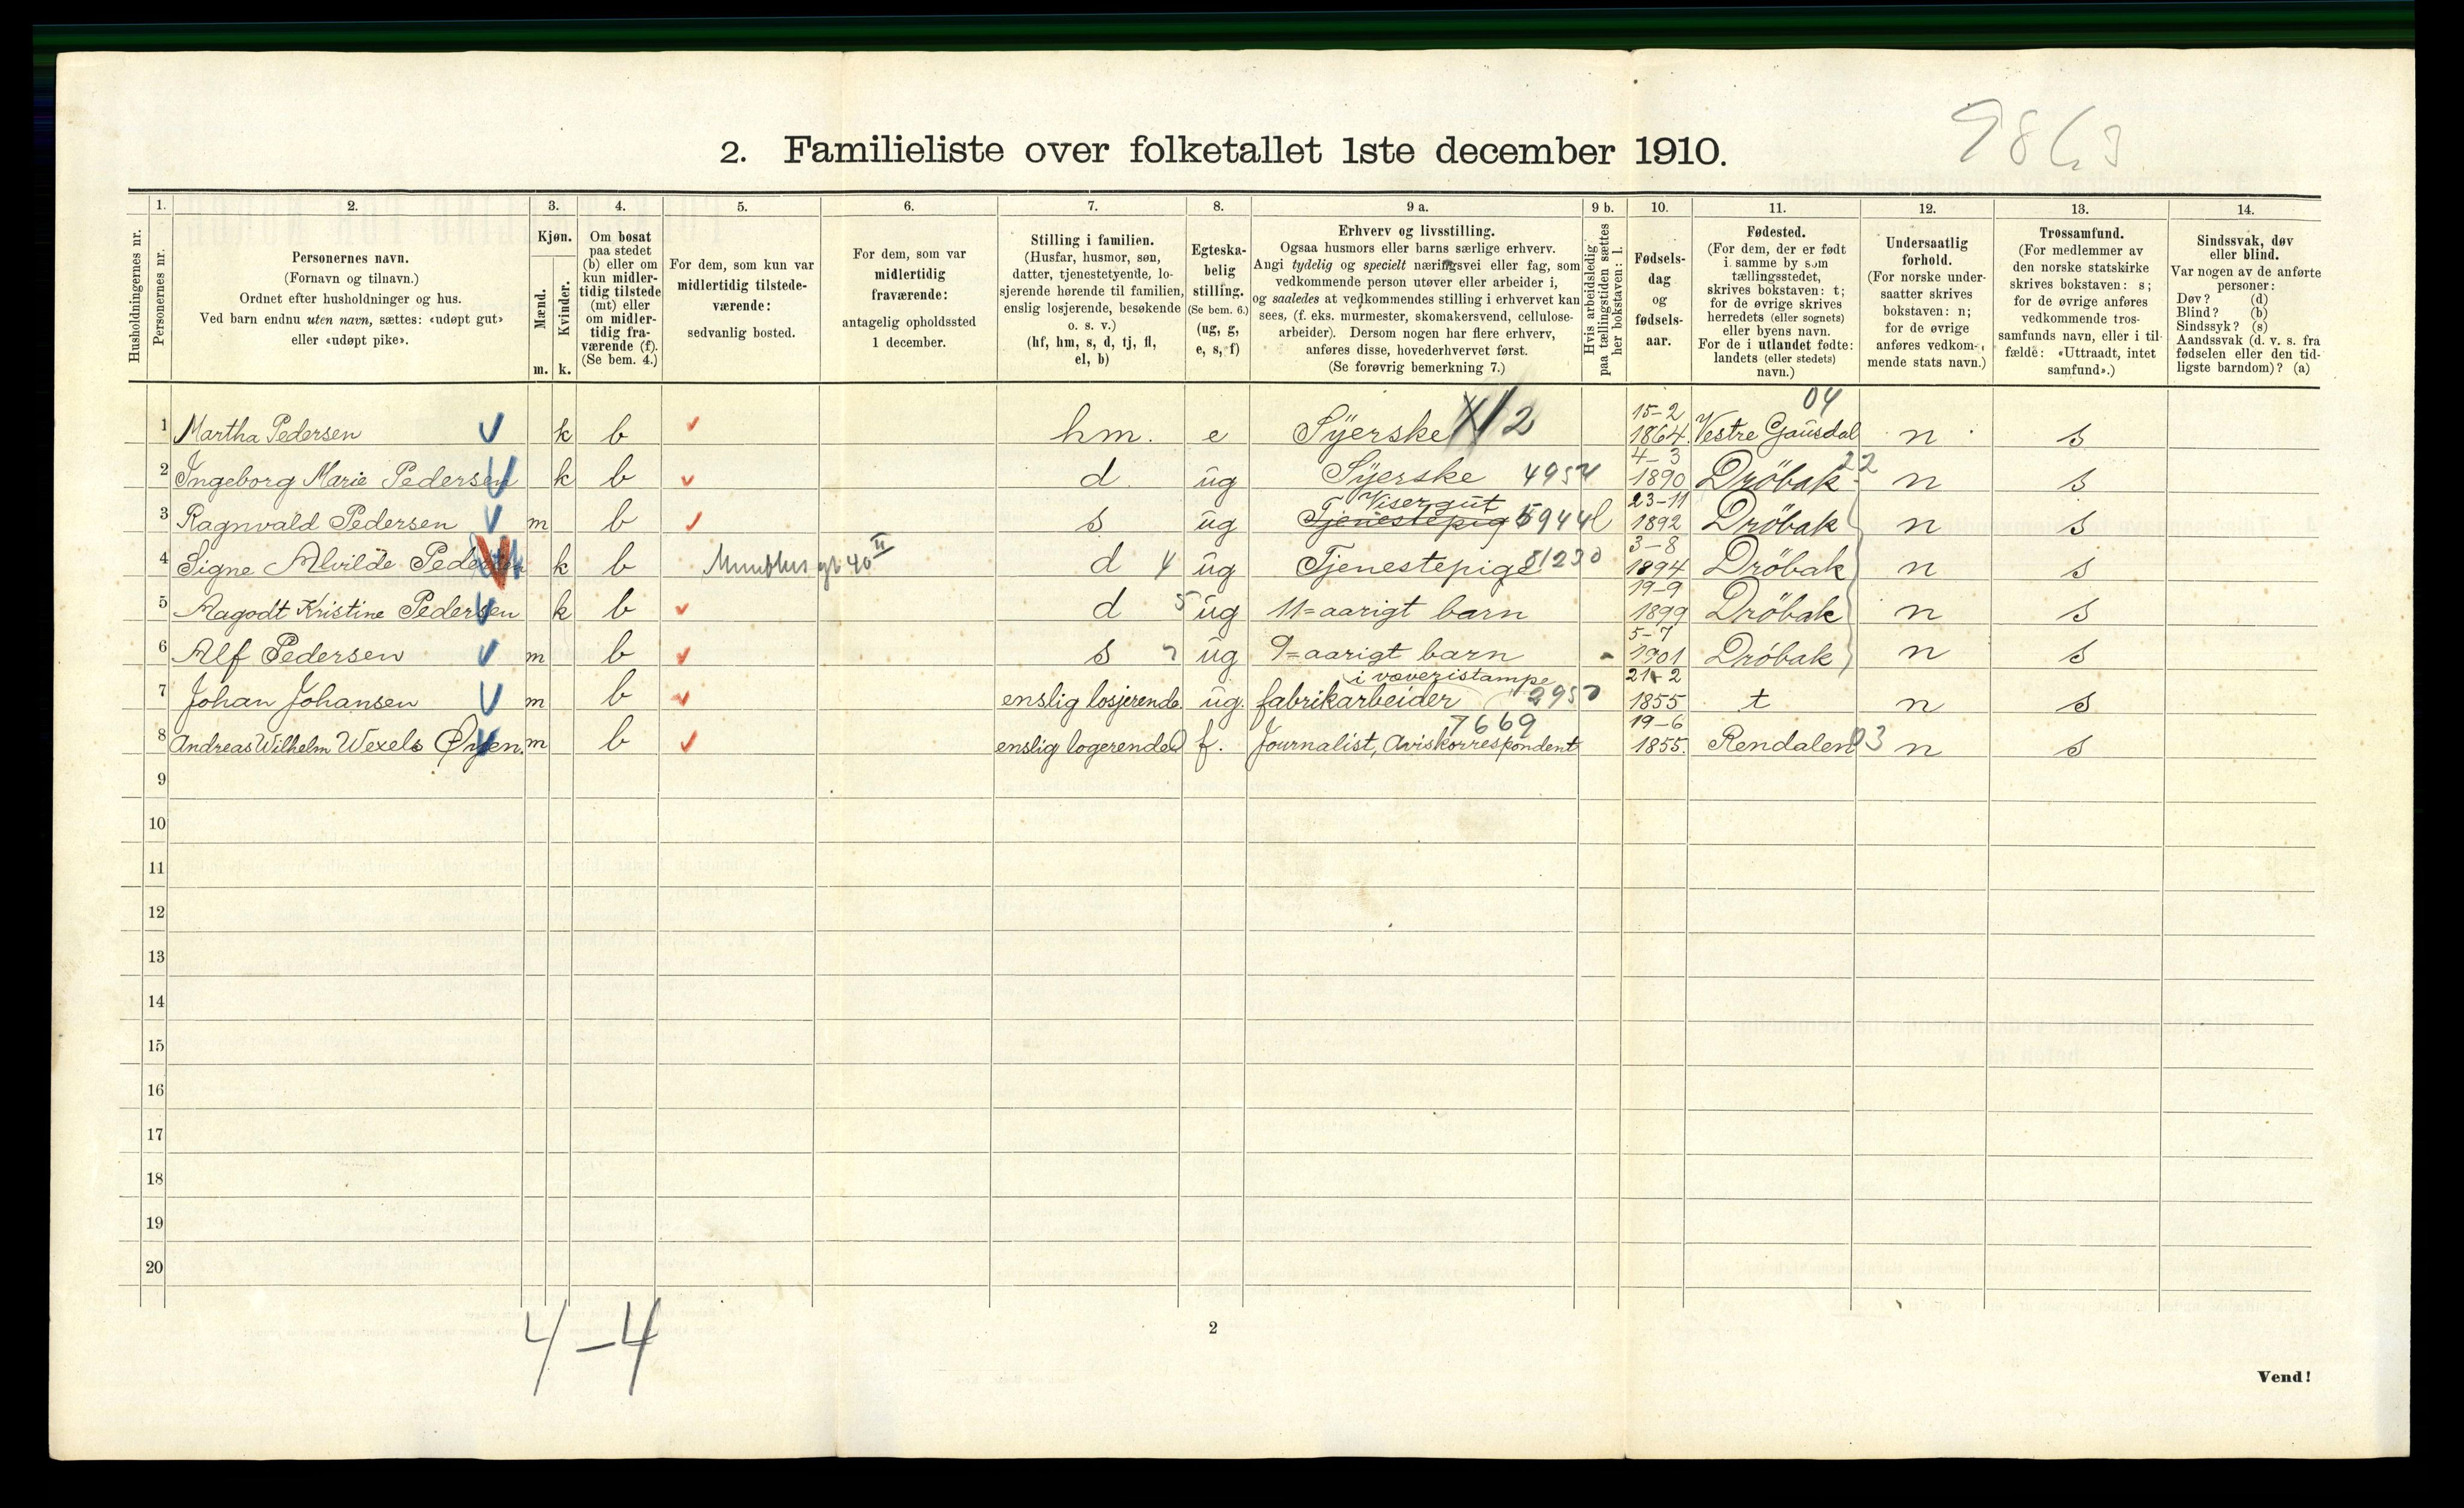 9863
2. Familieliste over folketallet 1ste december 1910.
Husholdningernes nr.
1. Personernes nr.
2. Personernes navn. (Fornavn og tilnavn.) Ordnet efter husholdninger og hus. Ved barn endnu uten navn, sættes: «udøpt gut» eller «udøpt pike».
3. Kjøn. Mænd. m. Kvinder. k.
4. Om bosat paa stedet (b) eller om kun midlertidig tilstede (mt) eller om midlertidig fraværende (f). (Se bem. 4.)
5. For dem, som kun var midlertidig tilstedeværende: sedvanlig bosted.
6. For dem, som var midlertidig fraværende: antagelig opholdssted 1 december.
7. Stilling i familien. (Husfar, husmor, søn, datter, tjenestetyende, losjerende hørende til familien, enslig losjerende, besøkende o. s. v.) (hf, hm, s, d, tj, fl, el, b)
8. Egteskabelig stilling. (Se bem. 6.) (ug, g, e, s, f)
9 a. Erhverv og livsstilling. Ogsaa husmors eller barns særlige erhverv. Angi tydelig og specielt næringsvei eller fag, som vedkommende person utøver eller arbeider i, og saaledes at vedkommendes stilling i erhvervet kan sees, (f. eks. murmester, skomakersvend, cellulosearbeider). Dersom nogen har flere erhverv, anføres disse, hovederhvervet først. (Se forøvrig bemerkning 7.)
9 b. Hvis arbeidsledig paa tællingstiden sættes her bokstaven: l.
10. Fødselsdag og fødselsaar.
11. Fødested. (For dem, der er født i samme by som tællingsstedet, skrives bokstaven: t; for de øvrige skrives herredets (eller sognets) eller byens navn. For de i utlandet fødte: landets (eller stedets) navn.)
12. Undersaatlig forhold. (For norske undersaatter skrives bokstaven: n; for de øvrige anføres vedkommende stats navn.)
13. Trossamfund. (For medlemmer av den norske statskirke skrives bokstaven: s; for de øvrige anføres vedkommende trossamfunds navn, eller i tilfælde: «Uttraadt, intet samfund».)
14. Sindssvak, døv eller blind. Var nogen av de anførte personer: Døv? (d) Blind? (b) Sindssyk? (s) Aandssvak (d. v. s. fra fødselen eller den tidligste barndom)? (a)
1 Martha Pedersen k b hm. e Syerske 15-2 1864. Vestre Gausdal 04 n s
2 Ingeborg Marie Pedersen k b d ug Syerske 4-3 1890 Dröbak 22 n s
3 Ragnvald Pedersen m b s ug Tjenestepig Visergut 5944 l 23-11 1892 Dröbak n s
4 Signe Alvilde Pedersen k b d 4 ug Tjenestepige 3-8 1894 Dröbak n s
5 Aagodt Kristine Pedersen k b d 5 ug 11=aarigt barn 19-9 1899 Dröbak n s
6 Alf Pedersen m b s ug 9=aarigt barn 5-7 1901 Dröbak n s
7 Johan Johansen m b enslig losjerende ug. fabrikarbeider i væveristampe 21-2 1855 t n s
8 Andreas Wilhelm Wexels m b enslig logerende f. Journalist, Aviskorrespondent 7669 19-6 1855. Rendalen 03 n s
9
10
11
12
13
14
15
16
17
18
19
20
4-4
2
Vend!